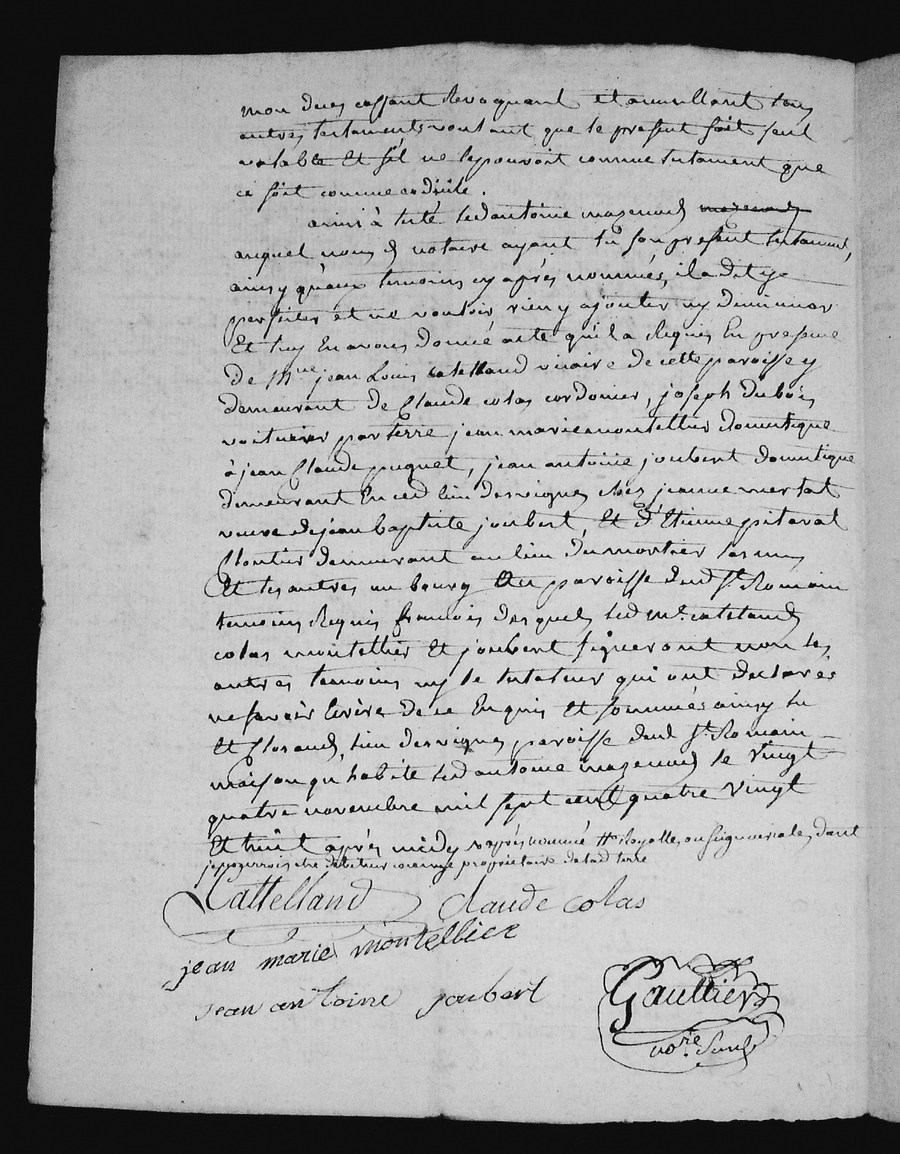 mon deces cassant Revoquant et annullant tous
autres testaments voulant que le present soit seul
valable Et s'il ne le pouvoit comme testament que
ce soit comme codicile .
ainsi à testé led antoine mazenod mazenod
auquel nous d notaire ayant lu son present testament,
ainsy qu'aux temoins cy après nommés, il a dit y
persister et ne vouloir rien y ajouter ny diminuer
Et luy En avons donné acte qu'il a Requis En presence
de Mre jean Louis Catelland vicaire de cette paroisse y
demeurant de Claude colas cordonier, joseph dubois
voiturier par terre jean marie montellier domestique
à jean Claude puquet, jean antoine joubert domestique
demeurant En ced lieu des vignes chez jeanne mertat
veuve de jean baptiste joubert, Et d'Etienne pitaval
Cloutier demeurant au lieu du mortier les uns
Et les autres au bourg Et paroisse dud St Romain
temoins Requis francois desquels led Mre catelland
colas montellier Et joubert signeront non les
autres temoins ny le testateur qui ont declarés
ne savoir Ecrire de ce Enquis Et sommés ainsy lu
Et Clos aud. lieu des vignes paroisse dud St Romain
maison qu'habite led antoine mazenod le vingt
quatre novembre mil sept cent quatre vingt
Et huit après midy royalle ou seigneuriale, dont
je pourrois etre debiteur comme proprietaire de lad terre
Cattelland claude colas
jean marie montellier
jean antoine joubert
Gaultier
nore